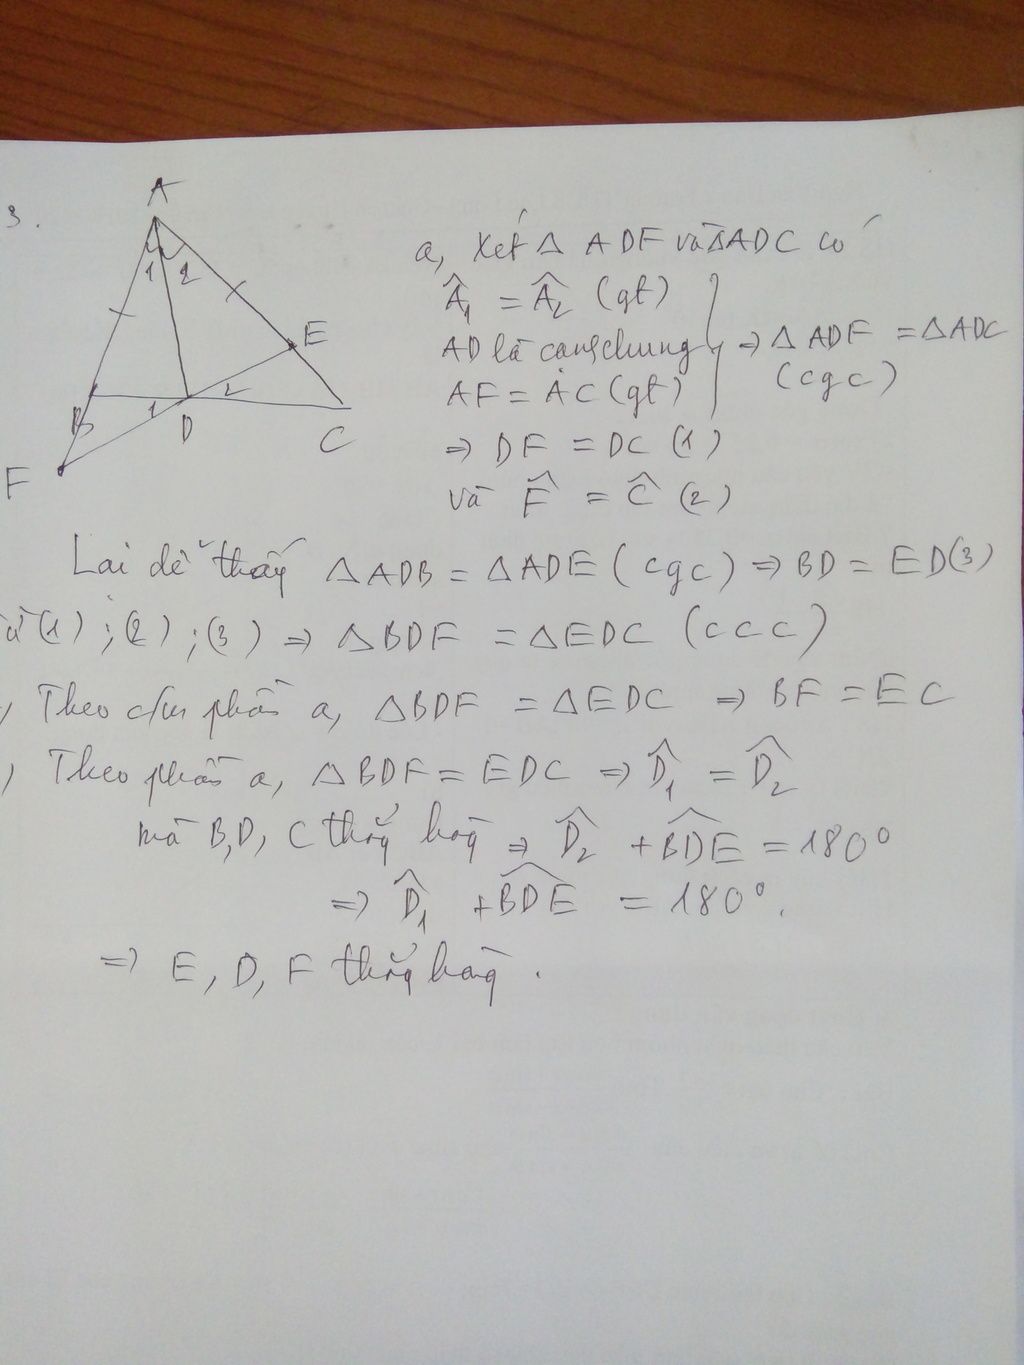 3.
A
1 2
E
B 1 2
D
C
F
a, Xét Δ ADF và ΔADC có
Â₁ = Â₂ (gt)
AD là cạnh chung ⇒ Δ ADF = ΔADC
AF = AC (gt) (cgc)
⇒ DF = DC (1)
và F̂ = Ĉ (2)
Lại dễ thấy ΔADB = ΔADE (cgc) ⇒ BD = ED (3)
từ (1) ; (2) ; (3) ⇒ ΔBDF = ΔEDC (ccc)
, Theo c/m phần a, ΔBDF = ΔEDC ⇒ BF = EC
) Theo phần a, ΔBDF = EDC ⇒ D̂₁ = D̂₂
mà B, D, C thẳng hàng ⇒ D̂₂ + BDÊ = 180°
⇒ D̂₁ + BDÊ = 180°.
⇒ E, D, F thẳng hàng.